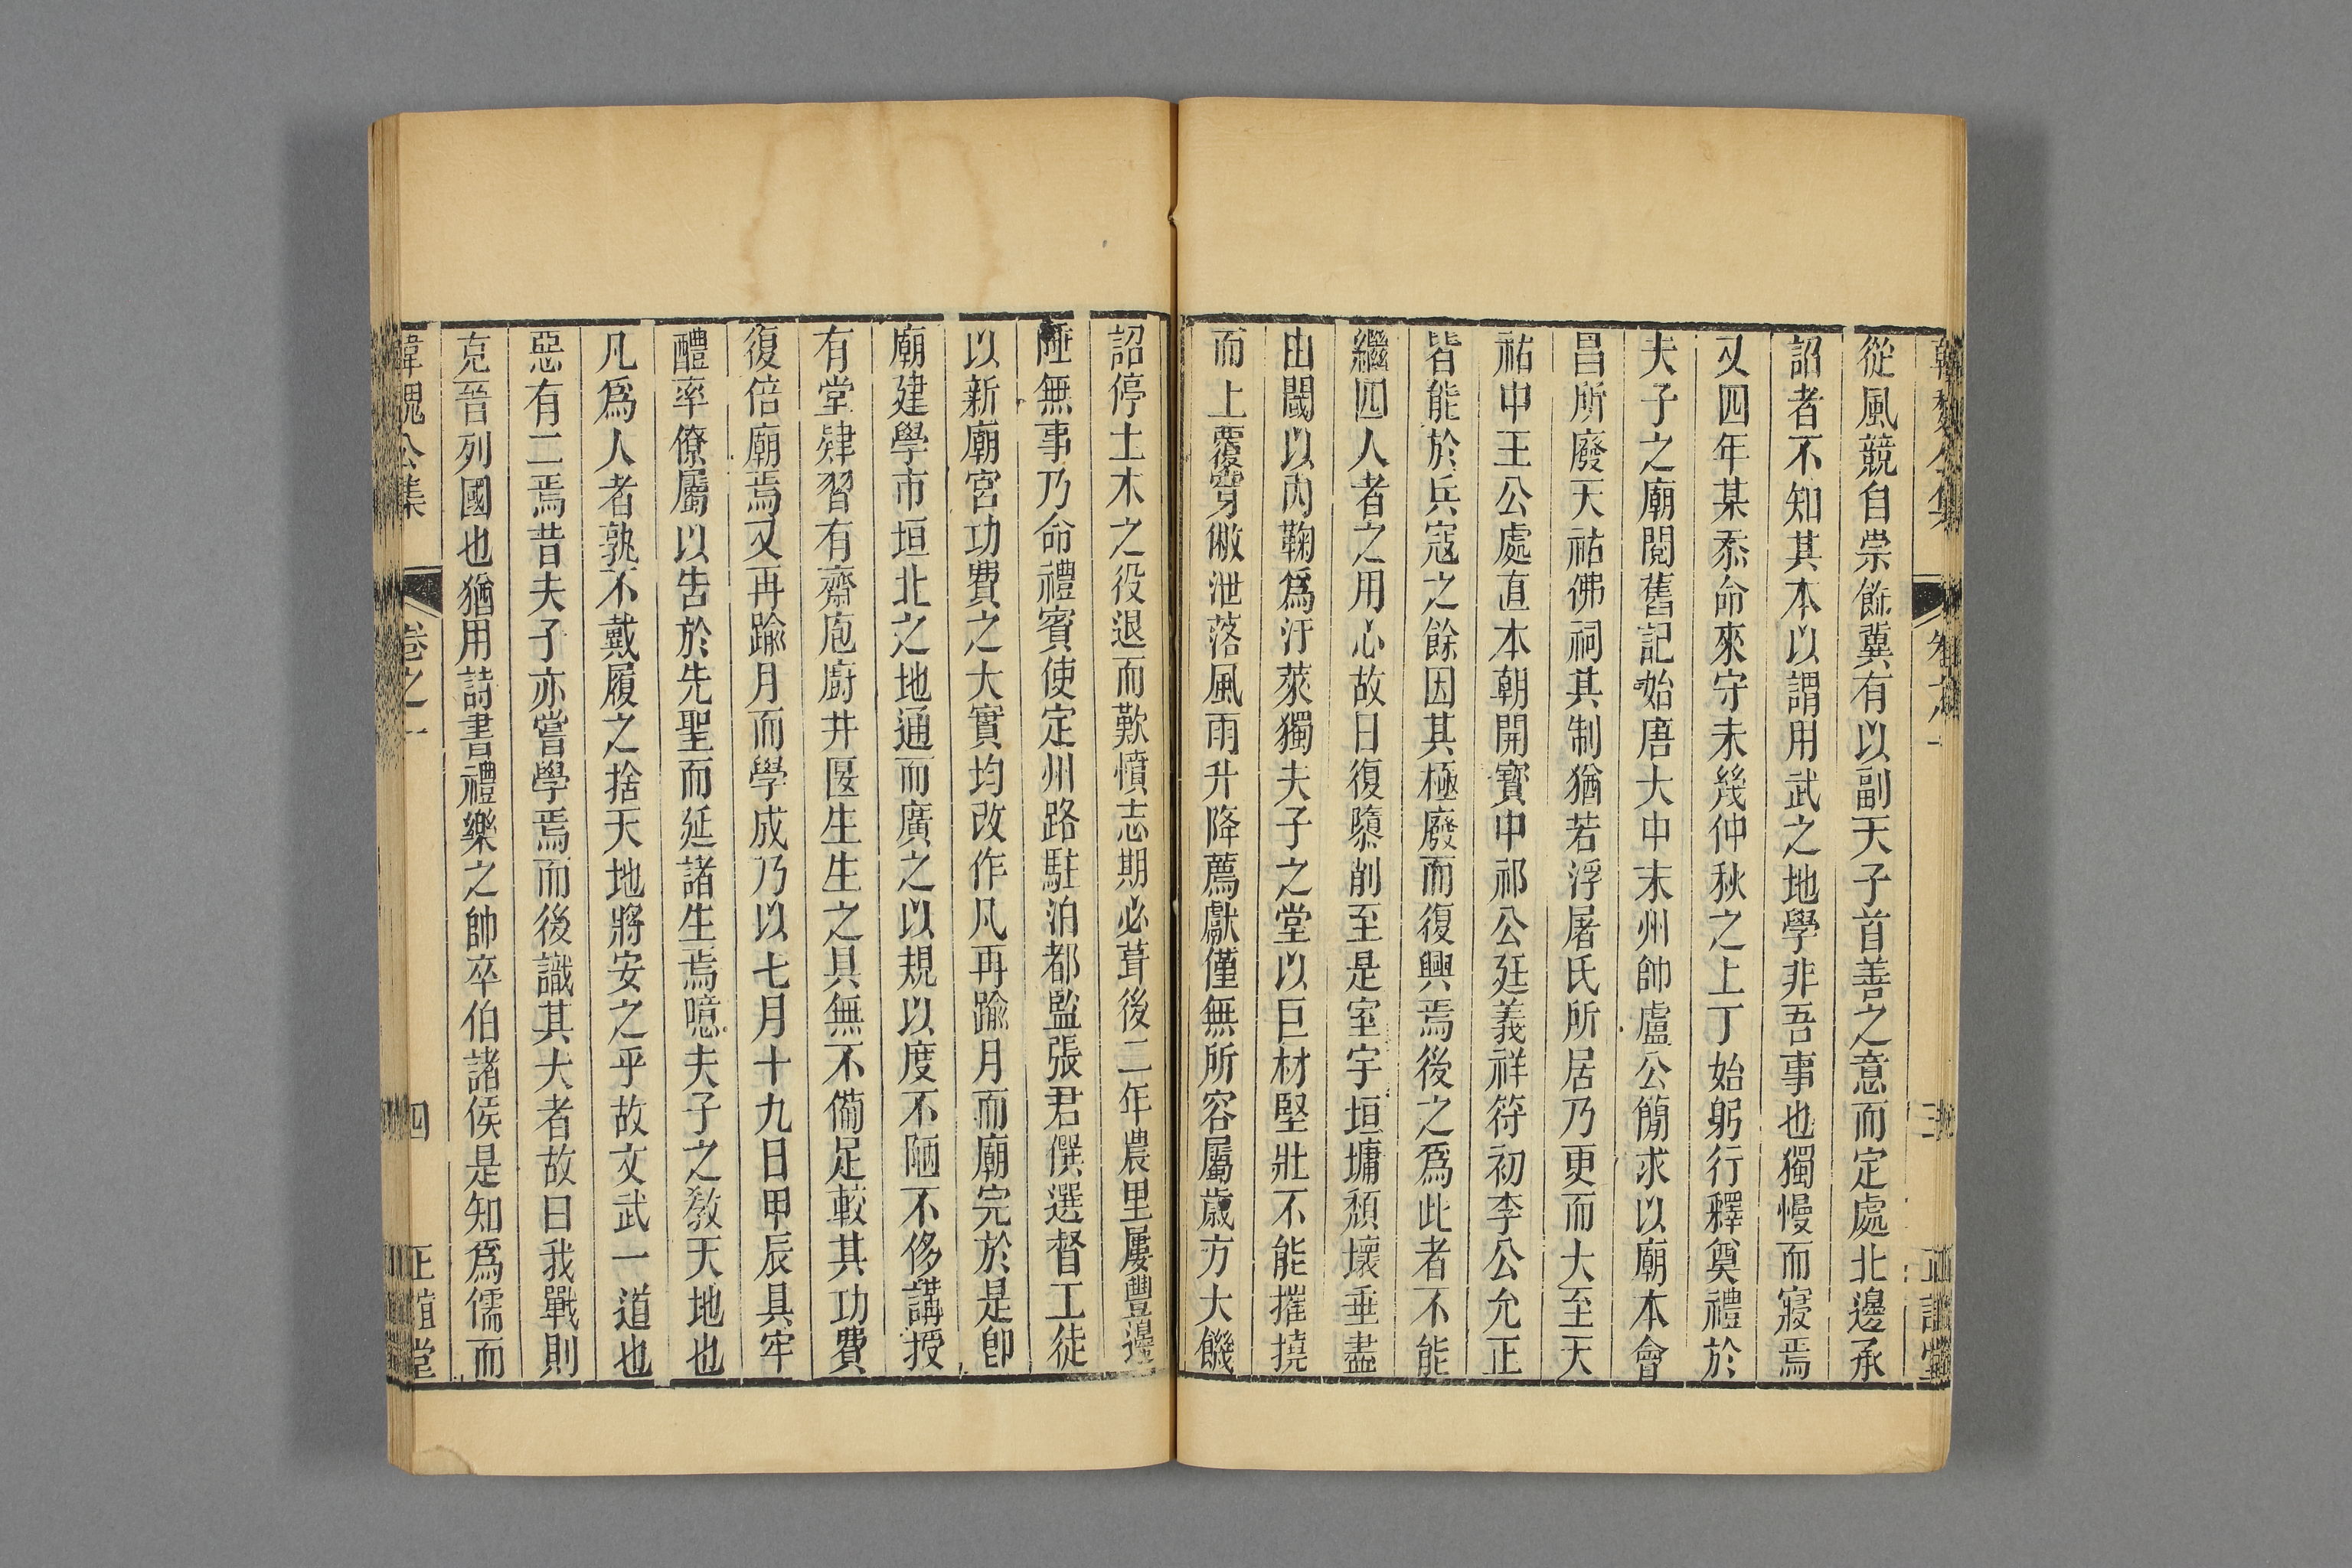 韓魏公集 卷之一 三 正誼堂
從風競自崇餙冀有以副天子首善之意而定處北邊承
詔者不知其本以謂用武之地學非吾事也獨慢而寢焉
又四年某忝命來守未幾仲秋之上丁始躬行釋奠禮於
夫子之廟閱舊記始唐大中末州帥盧公簡求以廟本會
昌所廢天祐佛祠其制猶若浮屠氏所居乃更而大至天
祐中王公處直本朝開寶中祁公廷義祥符初李公允正
皆能於兵寇之餘因其極廢而復興焉後之爲此者不能
繼四人者之用心故日復隳削至是室宇垣墉頽壞垂盡
由閾以內鞠爲汙萊獨夫子之堂以巨材堅壯不能摧撓
而上覆穿僘泄落風雨升降薦獻僅無所容屬歲方大饑
詔停土木之役退而歎憤志期必葺後二年農里屢豐邊
陲無事乃命禮賓使定州路駐泊都監張君僎選督工徒
以新廟宮功費之大實均改作凡再踰月而廟完於是卽
廟建學市垣北之地通而廣之以規以度不陋不侈講授
有堂肄習有齋庖廚井匽生生之具無不備足較其功費
復倍廟焉又再踰月而學成乃以七月十九日甲辰具牢
醴率僚屬以告於先聖而延諸生焉噫夫子之敎天地也
凡爲人者孰不戴履之捨天地將安之乎故文武一道也
惡有二焉昔夫子亦嘗學焉而後識其大者故曰我戰則
克晉列國也猶用詩書禮樂之帥卒伯諸侯是知爲儒而
韓魏公集 卷之一 四 正誼堂